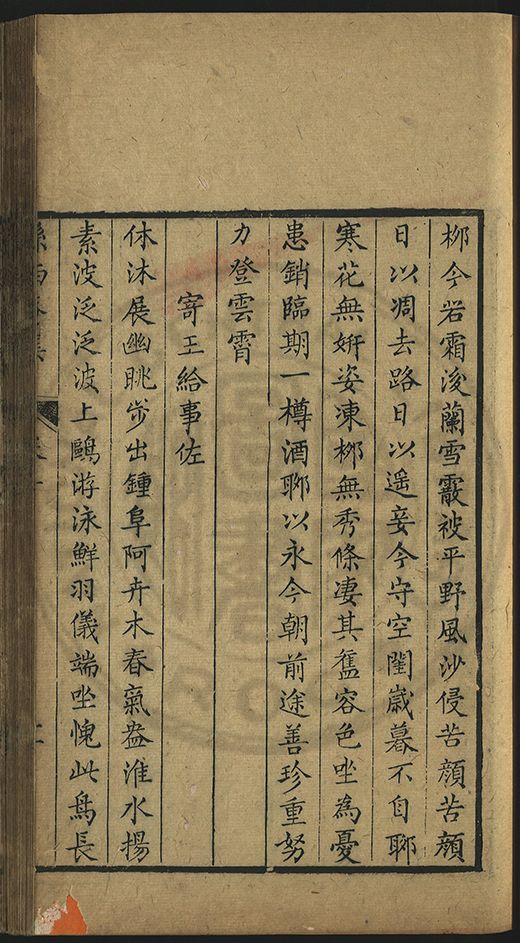 柳今若霜後蘭雪霰被平野風沙侵苦顏苦顏
日以凋去路日以遥妾今守空閨歳暮不自聊
寒花無妍姿凍柳無秀條凄其舊容色坐為憂
患銷臨期一樽酒聊以永今朝前途善珍重努
力登雲霄
寄王給事佐
休沐展幽眺步出鍾阜阿卉木春氣盎淮水揚
素波泛泛波上鷗游泳鮮羽儀端坐愧此鳥長